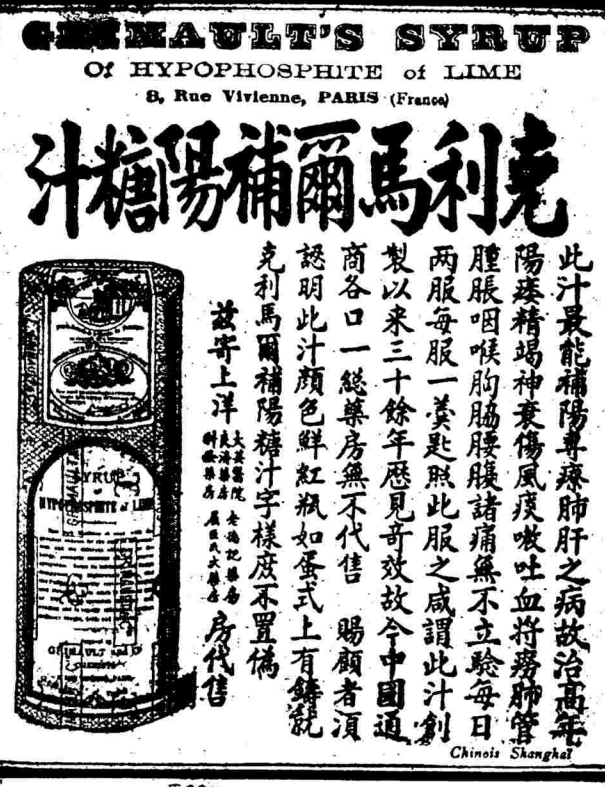 GRIMAULT'S SYRUP
Of HYPOPHOSPHITE of LIME
8, Rue Vivienne, PARIS (France)
克利馬爾補陽糖汁
此汁最能補陽專療肺肝之病故治高年
陽痿精竭神衰傷風痰嗽吐血
肺管
腫脹咽喉胸脇腰腹諸痛無不立驗每日
两服每服一羮匙照此服之咸謂此汁創
製以来三十餘年歷見奇效故今中國通
商各口一總藥房無不代售 賜顧者須
認明此汁顏色鮮紅瓶如蛋式上有鑄就
克利馬爾補陽糖汁字樣庶不置偽
兹寄上洋
大英醫院
老德記藥房
屈臣氏大藥房
房代售
SYRUP
HYPOPHOSPHITE of LIME
GRIMAULT
Chinois Shanghai